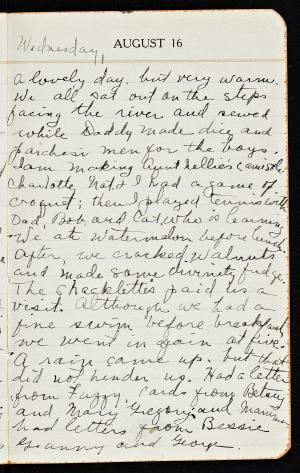 Wednesday,
AUGUST 16
a lovely day, but very warm.
We all sat out on the steps
facing the river and sewed
while Daddy made dice and
parchesi men for the boys.
I am making Aunt Nellie's camisole.
Charlotte, Nat & I had a game of
croquet; then I played tennis with
Dad, Bob and Cat, who is learning.
We ate Watermelon before lunch.
After, we cracked walnuts
and made some divinity fudge.
The Shacklettes paid us a
visit. Although we had a
fine swim before breakfast,
we went in again at five.
A rain came up, but that
did not hinder us. Had a letter
from Fuzzy, cards from Betsy
and Mary Gregory and Mamma
had letters from Bessie
Granny and George.